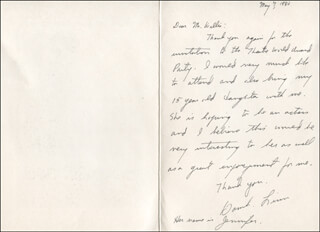 May 7, 1980
Dear Mr. Willis:
Thank you again for the
invitation to the Theatre World Award
Party. I would very much like
to attend and also bring my
15 year old daughter with me.
She is hoping to be an actress
and I believe this would be
very interesting to her as well
as a great enjoyment for me.
Thank you.
David
Her name is Jennifer.